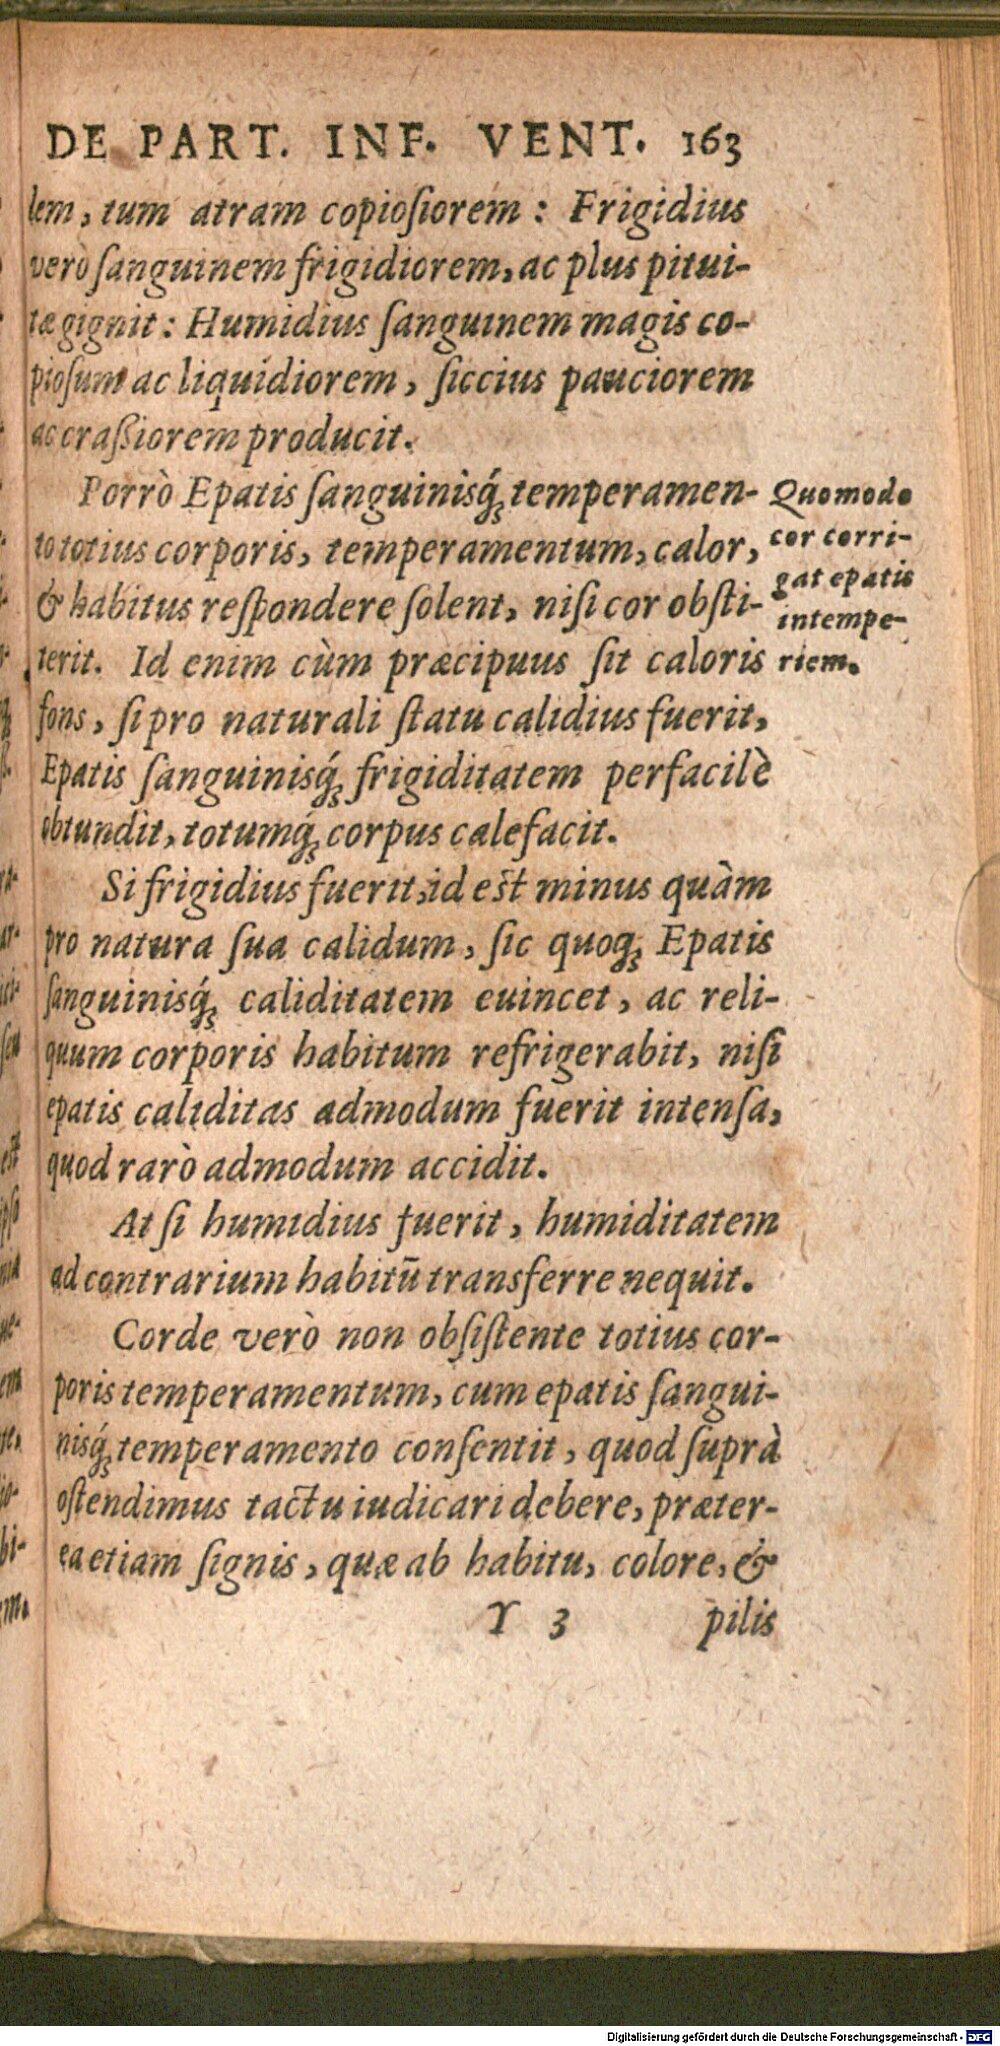 DE PART. INF. VENT. 163
lem, tum atram copioſiorem : Frigidius
verò ſanguinem frigidiorem, ac plus pitui-
tæ gignit : Humidius ſanguinem magis co-
pioſum ac liquidiorem, ſiccius pauciorem
ac craſſiorem producit.
Porrò Epatis ſanguinisq́; temperamen-
to totius corporis, temperamentum, calor,
& habitus reſpondere ſolent, niſi cor obſti-
terit. Id enim cùm præcipuus ſit caloris
fons, ſi pro naturali ſtatu calidius fuerit,
Epatis ſanguinisq́; frigiditatem perfacilè
obtundit, totumq́; corpus calefacit.
Quomodo
cor corri-
gat epatis
intempe-
riem.
Si frigidius fuerit, id est minus quàm
pro natura ſua calidum, ſic quoq; Epatis
ſanguinisq́; caliditatem euincet, ac reli-
quum corporis habitum refrigerabit, niſi
epatis caliditas admodum fuerit intenſa,
quod rarò admodum accidit.
At ſi humidius fuerit, humiditatem
ad contrarium habitũ transferre nequit.
Corde verò non obſiſtente totius cor-
poris temperamentum, cum epatis ſangui-
nisq́; temperamento conſentit, quod ſuprà
oſtendimus tactu iudicari debere, præter-
ea etiam ſignis, quæ ab habitu, colore, &
Y 3 pilis
Digitalisierung gefördert durch die Deutsche Forschungsgemeinschaft - DFG